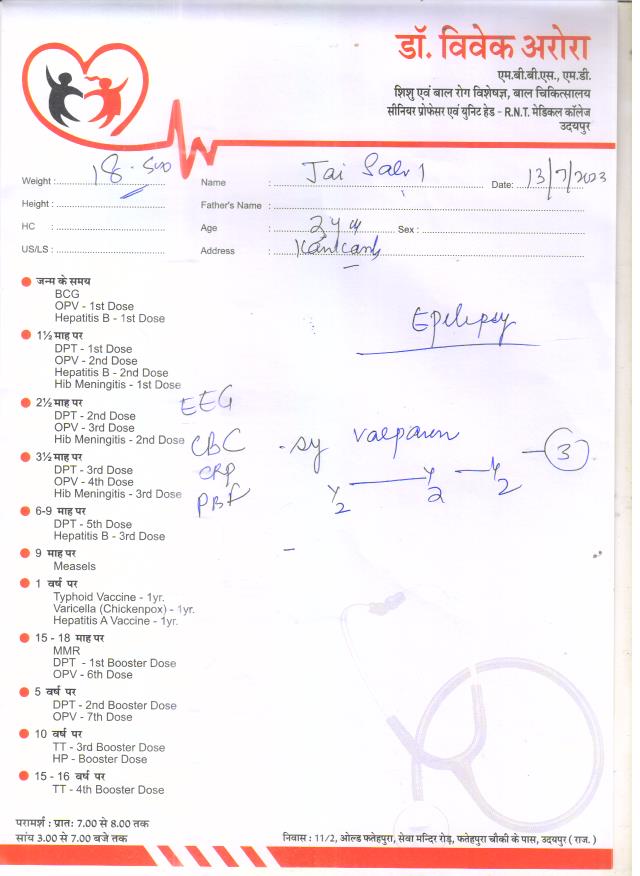 डॉ. विवेक अरोरा
एम.बी.बी.एस., एम.डी.
शिशु एवं बाल रोग विशेषज्ञ, बाल चिकित्सालय
सीनियर प्रोफेसर एवं युनिट हेड - R.N.T. मेडिकल कॉलेज
उदयपुर
Weight : 18.500
Name : Jai Date: 13/7/2023
Height :
Father's Name :
HC :
Age : 2y Sex :
US/LS :
Address :
जन्म के समय
BCG
OPV - 1st Dose
Hepatitis B - 1st Dose
Epilepsy
1½ माह पर
DPT - 1st Dose
OPV - 2nd Dose
Hepatitis B - 2nd Dose
Hib Meningitis - 1st Dose
2½ माह पर
DPT - 2nd Dose
OPV - 3rd Dose
Hib Meningitis - 2nd Dose
EEG
CBC
CRP
PBF
sy valparin
½ ½ ½ 3
3½ माह पर
DPT - 3rd Dose
OPV - 4th Dose
Hib Meningitis - 3rd Dose
6-9 माह पर
DPT - 5th Dose
Hepatitis B - 3rd Dose
9 माह पर
Measels
1 वर्ष पर
Typhoid Vaccine - 1yr.
Varicella (Chickenpox) - 1yr.
Hepatitis A Vaccine - 1yr.
15 - 18 माह पर
MMR
DPT - 1st Booster Dose
OPV - 6th Dose
5 वर्ष पर
DPT - 2nd Booster Dose
OPV - 7th Dose
10 वर्ष पर
TT - 3rd Booster Dose
HP - Booster Dose
15 - 16 वर्ष पर
TT - 4th Booster Dose
परामर्श : प्रात: 7.00 से 8.00 तक
सांय 3.00 से 7.00 बजे तक
निवास : 11/2, ओल्ड फतेहपुरा, सेवा मन्दिर रोड़, फतेहपुरा चौकी के पास, उदयपुर ( राज. )